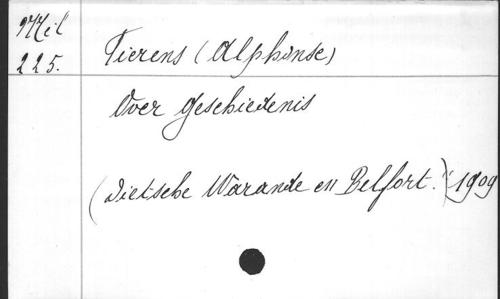 Mél
225.
Fierens (Alphonse)
Over geschiedenis
(Dietsche Warande en Belfort.") 1909